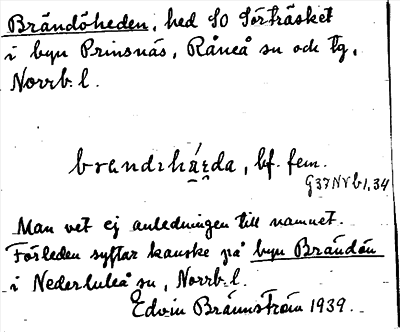 Brändöheden, hed SO Sörträsket
i byn Prinsnäs, Råneå sn och tg,
Norrb. l.
brandzhä́ɽda, bf. fem.
G37Nrb1,34
Man vet ej anledningen till namnet.
Förleden syftar kanske på byn Brändön
i Nederluleå sn, Norrb. l.
Edvin Brännström 1939.